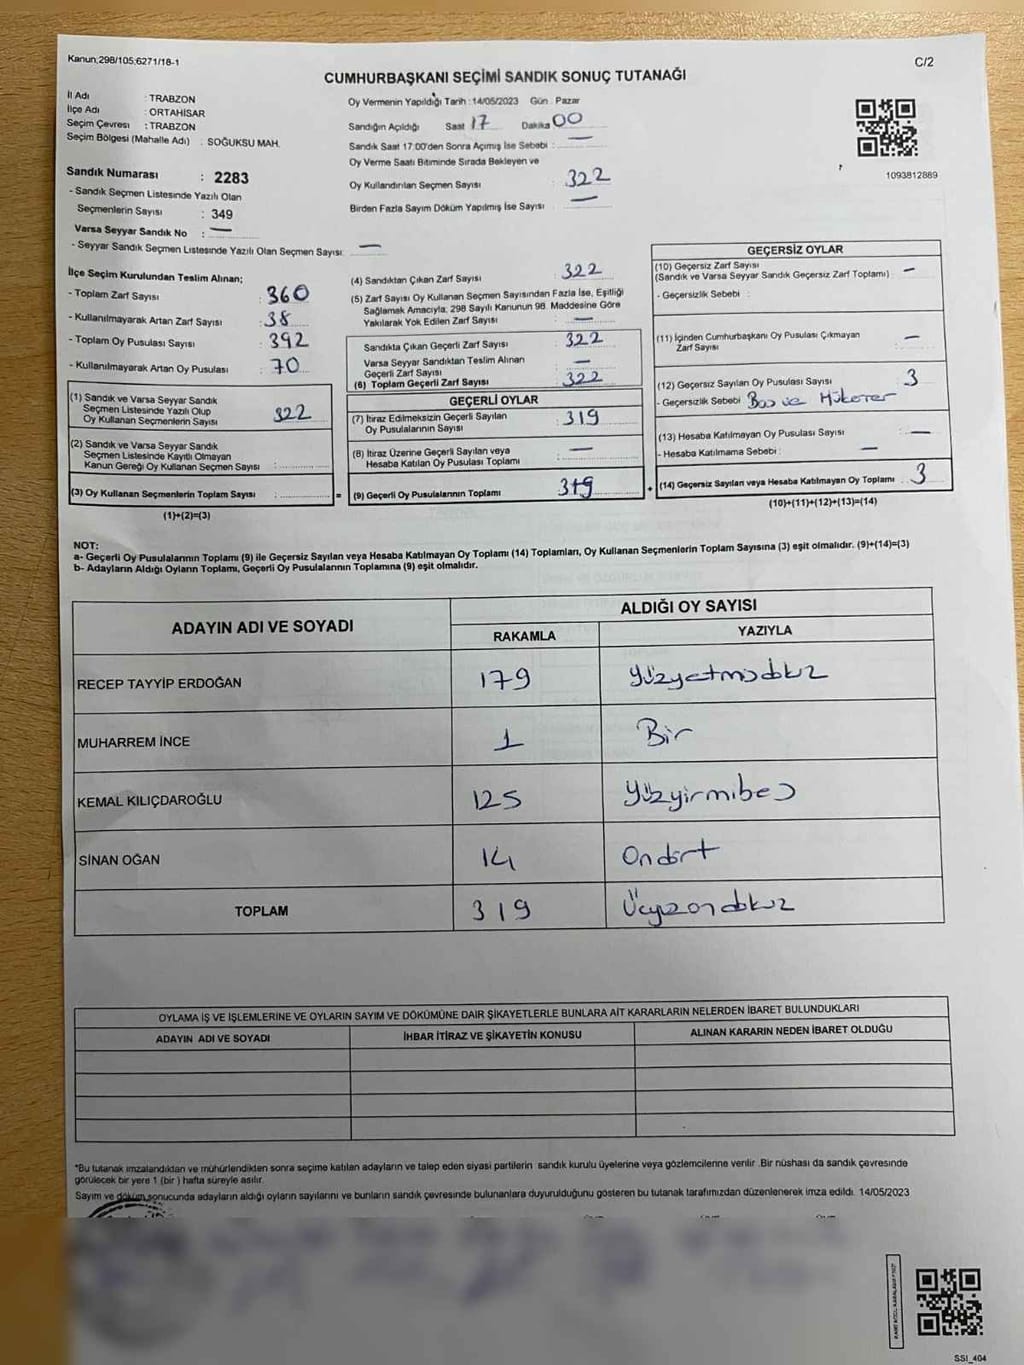 Kanun;298/105;6271/18-1
C/2
CUMHURBAŞKANI SEÇİMİ SANDIK SONUÇ TUTANAĞI
İl Adı : TRABZON
İlçe Adı : ORTAHİSAR
Seçim Çevresi : TRABZON
Seçim Bölgesi (Mahalle Adı) . SOĞUKSU MAH.
Oy Vermenin Yapıldığı Tarih : 14/05/2023 Gün . Pazar
Sandığın Açıldığı Saat 17 Dakika 00
Sandık Saat 17:00'den Sonra Açımış İse Sebebi : —
Oy Verme Saati Bitiminde Sırada Bekleyen ve
Oy Kullandırılan Seçmen Sayısı : 322
Birden Fazla Sayım Döküm Yapılmış İse Sayısı : —
1093812889
Sandık Numarası : 2283
- Sandık Seçmen Listesinde Yazılı Olan
Seçmenlerin Sayısı : 349
Varsa Seyyar Sandık No : —
- Seyyar Sandık Seçmen Listesinde Yazılı Olan Seçmen Sayısı: —
İlçe Seçim Kurulundan Teslim Alınan;
- Toplam Zarf Sayısı : 360
- Kullanılmayarak Artan Zarf Sayısı : 38
- Toplam Oy Pusulası Sayısı : 392
- Kullanılmayarak Artan Oy Pusulası : 70
(1) Sandık ve Varsa Seyyar Sandık
Seçmen Listesinde Yazılı Olup
Oy Kullanan Seçmenlerin Sayısı : 322
(2) Sandık ve Varsa Seyyar Sandık
Seçmen Listesinde Kayıtlı Olmayan
Kanun Gereği Oy Kullanan Seçmen Sayısı :
(3) Oy Kullanan Seçmenlerin Toplam Sayısı :
(1)+(2)=(3)
=
(4) Sandıktan Çıkan Zarf Sayısı : 322
(5) Zarf Sayısı Oy Kullanan Seçmen Sayısından Fazla İse, Eşitliği
Sağlamak Amacıyla; 298 Sayılı Kanunun 98. Maddesine Göre
Yakılarak Yok Edilen Zarf Sayısı : —
Sandıkta Çıkan Geçerli Zarf Sayısı : 322
Varsa Seyyar Sandıktan Teslim Alınan
Geçerli Zarf Sayısı : —
(6) Toplam Geçerli Zarf Sayısı : 322
GEÇERLİ OYLAR
(7) İtiraz Edilmeksizin Geçerli Sayılan
Oy Pusulalarının Sayısı : 319
(8) İtiraz Üzerine Geçerli Sayılan veya
Hesaba Katılan Oy Pusulası Toplamı : —
(9) Geçerli Oy Pusulalarının Toplamı : 319
+
GEÇERSİZ OYLAR
(10) Geçersiz Zarf Sayısı
(Sandık ve Varsa Seyyar Sandık Geçersiz Zarf Toplamı) : —
- Geçersizlik Sebebi :
(11) İçinden Cumhurbaşkanı Oy Pusulası Çıkmayan
Zarf Sayısı : —
(12) Geçersiz Sayılan Oy Pusulası Sayısı : 3
- Geçersizlik Sebebi : Boş ve Mükerrer
(13) Hesaba Katılmayan Oy Pusulası Sayısı : —
- Hesaba Katılmama Sebebi : —
(14) Geçersiz Sayılan veya Hesaba Katılmayan Oy Toplamı : 3
(10)+(11)+(12)+(13)=(14)
NOT:
a- Geçerli Oy Pusulalarının Toplamı (9) ile Geçersiz Sayılan veya Hesaba Katılmayan Oy Toplamı (14) Toplamları, Oy Kullanan Seçmenlerin Toplam Sayısına (3) eşit olmalıdır. (9)+(14)=(3)
b- Adayların Aldığı Oyların Toplamı, Geçerli Oy Pusulalarının Toplamına (9) eşit olmalıdır.
ADAYIN ADI VE SOYADI
ALDIĞI OY SAYISI
RAKAMLA YAZIYLA
RECEP TAYYİP ERDOĞAN 179 Yüzyetmişdokuz
MUHARREM İNCE 1 Bir
KEMAL KILIÇDAROĞLU 125 Yüzyirmibeş
SİNAN OĞAN 14 Ondört
TOPLAM 319 Üçyüzondokuz
OYLAMA İŞ VE İŞLEMLERİNE VE OYLARIN SAYIM VE DÖKÜMÜNE DAİR ŞİKAYETLERLE BUNLARA AİT KARARLARIN NELERDEN İBARET BULUNDUKLARI
ADAYIN ADI VE SOYADI İHBAR İTİRAZ VE ŞİKAYETİN KONUSU ALINAN KARARIN NEDEN İBARET OLDUĞU
*Bu tutanak imzalandıktan ve mühürlendikten sonra seçime katılan adayların ve talep eden siyasi partilerin sandık kurulu üyelerine veya gözlemcilerine verilir .Bir nüshası da sandık çevresinde
görülecek bir yere 1 (bir ) hafta süreyle asılır.
Sayım ve döküm sonucunda adayların aldığı oyların sayılarını ve bunların sandık çevresinde bulunanlara duyurulduğunu gösteren bu tutanak tarafımızdan düzenlenerek imza edildi. 14/05/2023
SSI_404